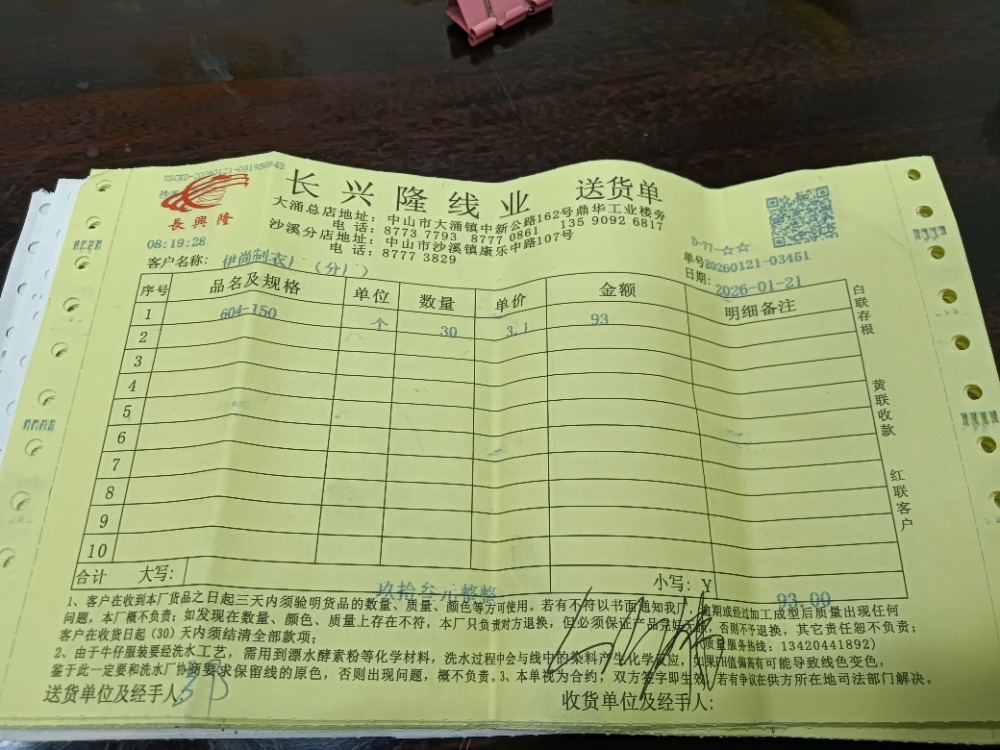 長興隆
长兴隆线业 送货单
大涌总店地址：中山市大涌镇中新公路162号鼎华工业楼旁
电话：8773 7793 8777 0861 135 9092 6817
沙溪分店地址：中山市沙溪镇康乐中路107号
电话：8777 3829
08:19:28
D-77-☆☆
单号20260121-03461
客户名称：伊尚制衣厂（分厂）
日期：2026-01-21
序号 品名及规格 单位 数量 单价 金额 明细备注
1 604-150 个 30 3.1 93
2
3
4
5
6
7
8
9
10
白联存根
黄联收款
红联客户
合计 大写：玖拾叁元整整 小写：Y 93.00
1、客户在收到本厂货品之日起三天内须验明货品的数量、质量、颜色等方可使用。若有不符以书面通知我厂，逾期或经过加工成型后质量出现任何
问题，本厂概不负责；如发现在数量、颜色、质量上存在不符，本厂只负责对方退换，但必须保证产品完好无损，否则不予退换，其它责任恕不负责；
客户在收货日起（30）天内须结清全部款项； （质量服务热线：13420441892）
2、由于牛仔服装要经洗水工艺，需用到漂水酵素粉等化学材料，洗水过程中会与线中的染料产生化学反应，如果PH值偏高有可能导致线色变色，
鉴于此一定要和洗水厂协商要求保留线的原色，否则出现问题，概不负责。3、本单视为合约，双方签字即生效，若有争议在供方所在地司法部门解决。
送货单位及经手人
收货单位及经手人：